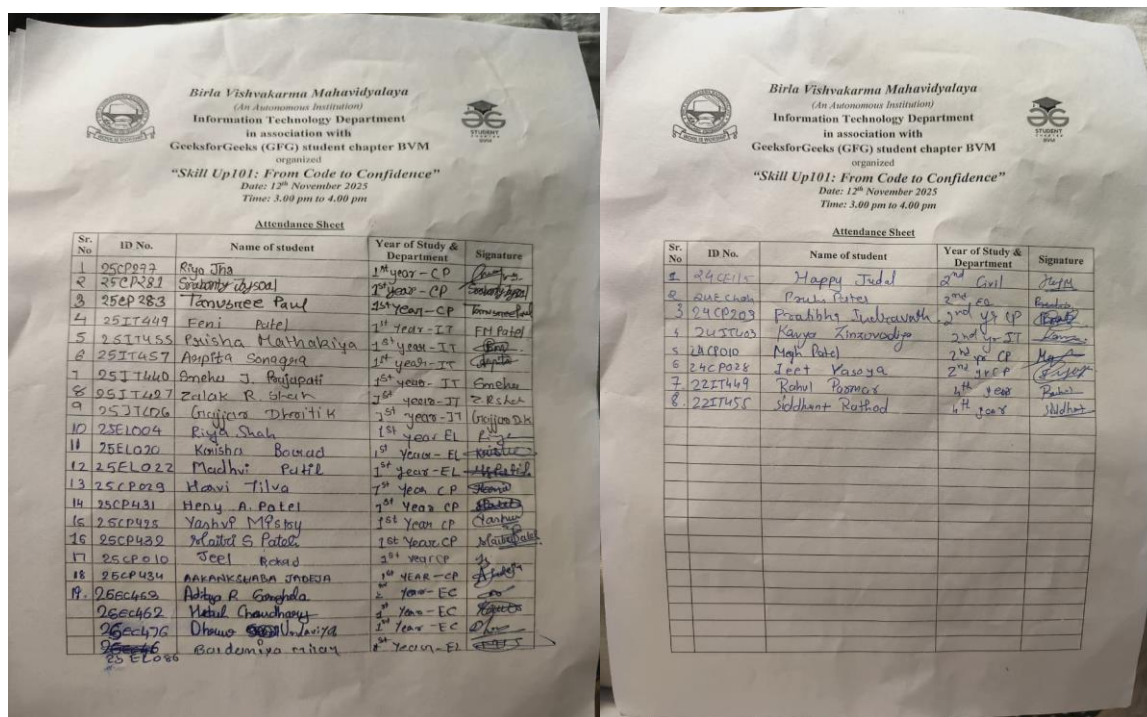 Birla Vishvakarma Mahavidyalaya
(An Autonomous Institution)
Information Technology Department
in association with
GeeksforGeeks (GFG) student chapter BVM
organized
"Skill Up101: From Code to Confidence"
Date: 12th November 2025
Time: 3.00 pm to 4.00 pm
STUDENT
CHAPTER
BVM
Attendance Sheet
Sr. No ID No. Name of student Year of Study & Department Signature
1 25CP277 Riya Jha 1st year - CP
2 25CP281 1st year - CP
3 25CP283 Tanusree Paul 1st Year - CP Tanusree Paul
4 25IT449 Feni Patel 1st Year - IT FM Patel
5 25IT455 Prisha Mathakiya 1st year - IT
6 25IT457 Arpita Sonagra 1st year - IT Arpita
7 25IT440 Sneha J. Prajapati 1st year - IT Sneha
8 25IT427 Zalak R. Shah 1st year - IT Z.R.Shah
9 25IT426 Gajjar 1st year - IT Gajjar D.K
10 25EL004 Riya Shah 1st year EL Riya
11 25EL020 Krisha 1st Year - EL
12 25EL022 Madhvi Patil 1st Year - EL
13 25CP029 Harvi Tilva 1st Year CP
14 25CP431 Heny A. Patel 1st Year CP
15 25CP425 Yashvi Mistry 1st Year CP Yashvi
16 25CP432 Maitri S. Patel 1st Year CP
17 25CP010 Jeel 1st year CP
18 25CP434 AAKANKSHABA JADEJA 1st YEAR - CP
19. Aditya R. Year - EC
Choudhary Year - EC
1st Year - EC
Milan 1st Year - EL
25 EL086
Birla Vishvakarma Mahavidyalaya
(An Autonomous Institution)
Information Technology Department
in association with
GeeksforGeeks (GFG) student chapter BVM
organized
"Skill Up101: From Code to Confidence"
Date: 12th November 2025
Time: 3.00 pm to 4.00 pm
STUDENT
CHAPTER
BVM
Attendance Sheet
Sr. No ID No. Name of student Year of Study & Department Signature
1 24CE115 Happy Judal 2nd Civil
2 2nd EC
3 24CP209 Pratibha 2nd yr CP
4 24IT403 Kavya Zinzuvadiya 2nd yr IT
5 24CP010 Megh Patel 2nd yr CP
6 24CP028 Jeet Vasoya 2nd yr CP
7. 22IT449 Rahul Parmar 4th year Rahul
8. 22IT455 Siddhant Rathod 4th year Siddhant